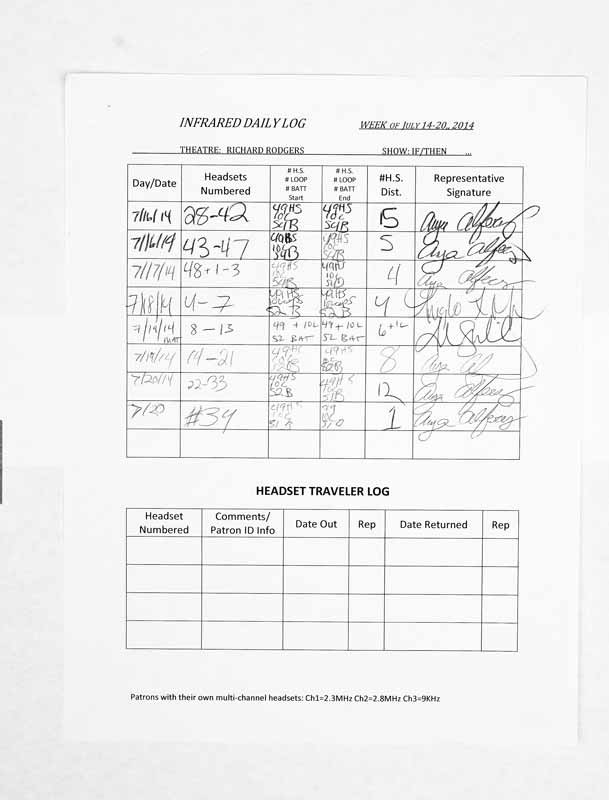 INFRARED DAILY LOG WEEK OF JULY 14-20, 2014
THEATRE: RICHARD RODGERS SHOW: IF/THEN ...
Day/Date Headsets Numbered # H.S. # LOOP # BATT Start # H.S. # LOOP # BATT End #H.S. Dist. Representative Signature
7/16/14 28-42 49HS 10L 54B 49HS 10L 54B 15 Anya Alfonzo
7/16/14 43-47 49HS 10L 54B 49HS 10L 54B 5
7/17/14 48+1-3 49HS 49HS 4
7/18/14 4-7 49HS 10LOOPS 52 B 49HS 10LOOPS 52 B 4
7/19/14 MAT 8-13 49 + 10L 52 BAT 49 + 10L 52 BAT 6+1L
7/19/14 14-21 49HS 49HS 52B 8
7/20/14 22-33 49HS 10L 52B 49HS 10L 51B 12
7/20 #34 49HS 10L 1
HEADSET TRAVELER LOG
Headset Numbered Comments/ Patron ID Info Date Out Rep Date Returned Rep
Patrons with their own multi-channel headsets: Ch1=2.3MHz Ch2=2.8MHz Ch3=9KHz